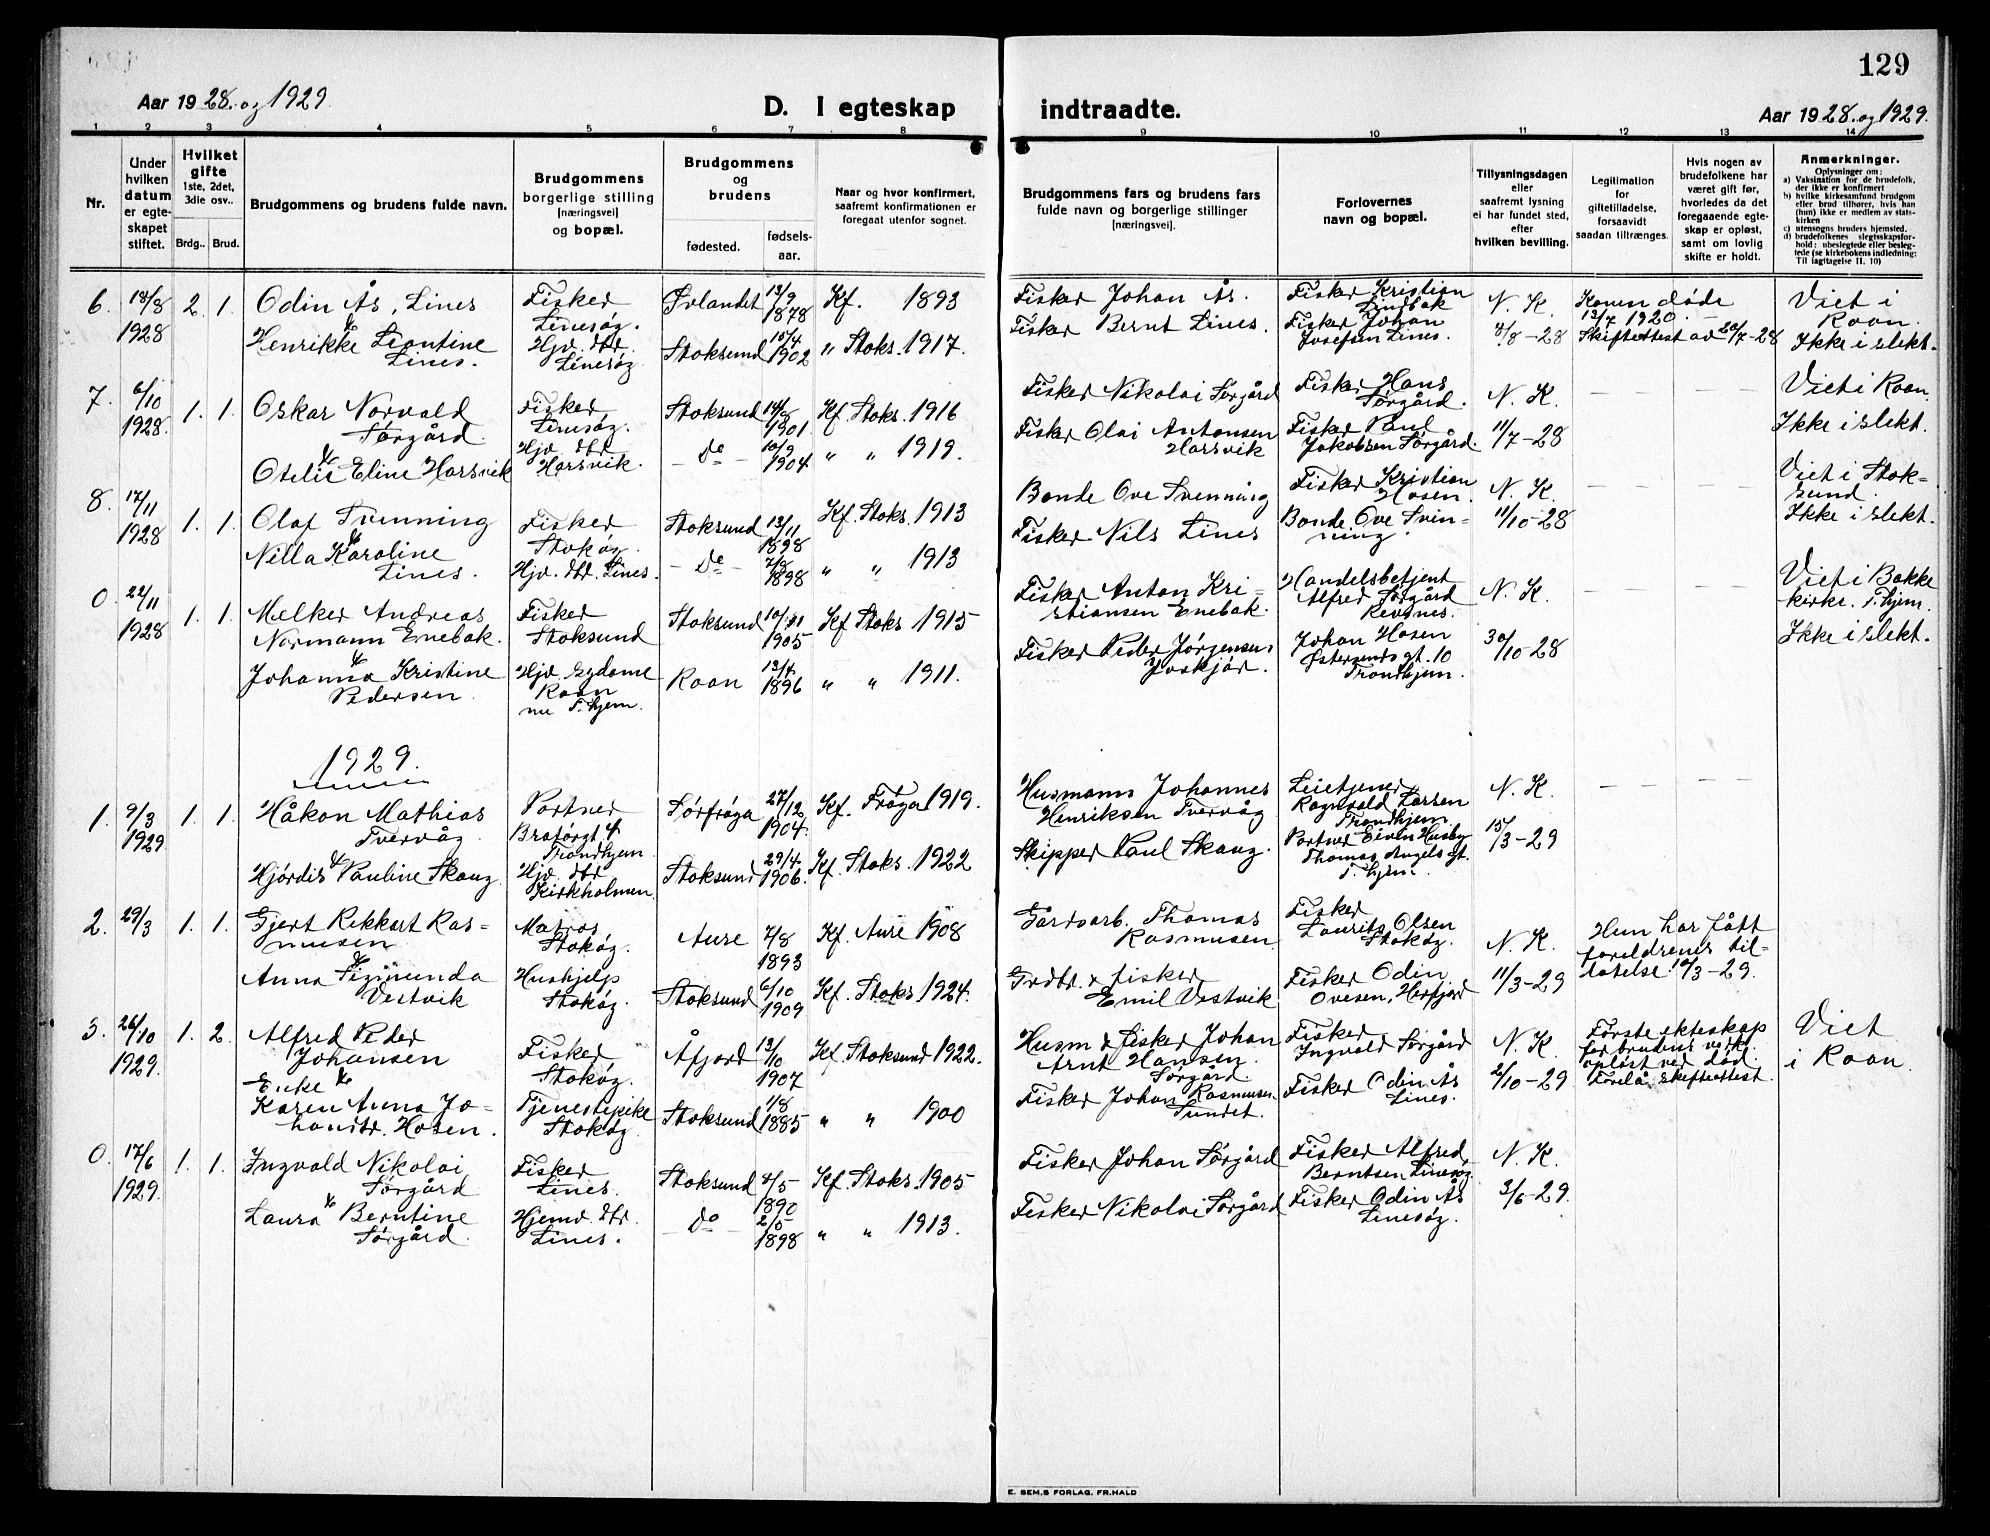 129
Aar 1928. og 1929.
D. I egteskap
indtraadte.
Aar 1928. og 1929.
1 2 3 4 5 6 7 8
9 10 11 12 13 14
Nr.
Under hvilken datum er egte-skapet stiftet.
Hvilket gifte
1ste, 2det, 3die osv..
Brdg.. Brud.
Brudgommens og brudens fulde navn.
Brudgommens borgerlige stilling [næringsvei] og bopæl.
Brudgommens og brudens
fødested.
fødsels-aar.
Naar og hvor konfirmert, saafremt konfirmationen er foregaat utenfor sognet.
Brudgommens fars og brudens fars fulde navn og borgerlige stillinger [næringsvei].
Forlovernes navn og bopæl.
Tillysningsdagen eller saafremt lysning ei har fundet sted, efter hvilken bevilling.
Legitimation for giftetilladelse, forsaavidt saadan tiltrænges.
Hvis nogen av brudefolkene har været gift før, hvorledes da det foregaaende egte-skap er opløst, samt om lovlig skifte er holdt.
Anmerkninger.
Oplysninger om:
a) Vaksination for de brudefolk, der ikke er konfirmert
b) hvilke kirkesamfund brudgom eller brud tilhører, hvis han (hun) ikke er medlem av stats-kirken
c) utensogns bruders hjemsted.
d) brudefolkenes slegtsskapsfor-hold: ubeslegtede eller besleg-tede (se kirkebokens indledning: Til iagttagelse II. 10)
6. 18/8 1928 2. 1.
Odin Ås, Lines
&
Henrikke Leontine
Lines.
Fisker
Linesøy.
Hjv. dtr.
Linesøy
Ørlandet 13/9 1878 Kf. 1893
Stoksund 15/4 1902 " Stoks. 1917.
Fisker Johan Ås.
Fisker Bernt Lines.
Fisker Kristian
Lindbak
Fisker Johan
Josefsen Lines.
N. K.
4/8-28
Konen døde
13/7 1920.
Skifteattest av 20/7-28
Viet i
Roan.
Ikke i slekt.
7. 6/10 1928. 1. 1.
Oskar Norvald
Sørgård
&
Otelie Eline Harsvik
Fisker
Linesøy.
Hjv. dtr
Harsvik.
Stoksund 14/8 1901 Kf. Stoks. 1916
- Do - 10/9 1904 " " 1919.
Fisker Nikolai Sørgård
Fisker Olai Antonsen
Harsvik
Fisker Hans
Sørgård.
Fisker Paul
Jakobsen Sørgård.
N. K.
11/7-28
Viet i Roan
Ikke i slekt.
8. 17/11 1928 1. 1.
Olaf Svenning
&
Nilla Karoline
Lines.
Fisker
Stokøy.
Hjv. dtr. Lines.
Stoksund 13/11 1898 Kf. Stoks. 1913
- Do - 7/8 1898 " " 1913
Bonde Ove Svenning
Fisker Nils Lines
Fisker Kristian
Hosen.
Bonde Ove Sven-
ning.
N. K.
11/10-28
Viet i Stok-
sund.
Ikke i slekt.
0. 22/11 1928 1. 1.
Melker Andreas
Normann Enebak.
&
Johanna Kristine
Pedersen.
Fisker
Stoksund
Hjv. Gydame
Roan
nu T.hjem.
Stoksund 10/11 1905 Kf. Stoks. 1915
Roan 13/4 1896 " " 1911.
Fisker Anton Kri-
stiansen Enebak.
Fisker Peder Jørgensen,
Joskjør.
Handelsbetjent
Alfred Sørgård
Revsnes.
Johan Hosen
Østersunds gt. 10
Trondhjem.
N. K.
30/10-28
Viet i Bakke
kirke. T.hjem.
Ikke i slekt.
1929.
1. 9/3 1929 1. 1.
Håkon Mathias
Tvervåg.
&
Hjørdis Pauline Skaug
Portner
Bratørgt 4
Trondhjem
Hjv. dtr
Kirkholmen
Sørfrøya 27/12 1904. Kf. Frøya 1919.
Stoksund 29/4 1906. Kf. Stoks. 1922
Husmann Johannes
Henriksen Tvervåg
Skipper Paul Skaug.
Leietjener
Ragnvald Larsen
Trondhjem.
Portner Eivin Husby
Thomas Angels gt.
T.hjem.
N. K.
15/3-29
2. 29/3 1. 1.
Gjert Rikkart Ras-
mussen
&
Anna Sigmunda
Vestvik
Matros
Stokøy.
Hushjelp
Stokøy.
Aure 7/8 1893 Kf. Aure 1908
Stoksund 6/10 1909 Kf. Stoks. 1924.
Gårdsarb. Thomas
Rasmusen
Grdbr. & fisker
Emil Vestvik
Fisker
Laurits Olsen
Stokøy.
Fisker Odin
Ovesen, Herfjord
N. K.
11/3-29
Hun har fått
foreldrenes til-
latelse. 10/3-29.
3. 26/10 1929. 1. 2.
Alfred Peder
Johansen
&
Enke
Karen Anna Jo-
hansdtr. Hosen.
Fisker
Stokøy.
Tjenestepike
Stokøy.
Åfjord 13/10 1907 Kf. Stoksund 1922.
Stoksund 1/8 1885 " " 1900
Husm & Fisker Johan
Arnt Hansen.
Sørgård.
Fisker Johan Rasmussen
Sundet.
Fisker
Ingvald Sørgård
Fisker Odin Ås
Lines.
N. K.
2/10-29
Første ekteskap
for brudens vedk.
opløst ved død.
Forelå skifteattest.
Viet
i Roan.
0. 17/6 1929. 1. 1.
Ingvald Nikolai
Sørgård
&
Laura Berntine
Sørgård.
Fisker
Lines.
Hjemv. dtr.
Lines.
Stoksund 4/5 1890 Kf. Stoks. 1905
- Do - 2/5 1898 " " 1913.
Fisker Johan Sørgård
Fisker Nikolai Sørgård
Fisker Alfred
Berntsen Linesøy.
Fisker Odin Ås
Linesøy.
N. K.
3/6-29.
E. SEM.S FORLAG. FR.HALD